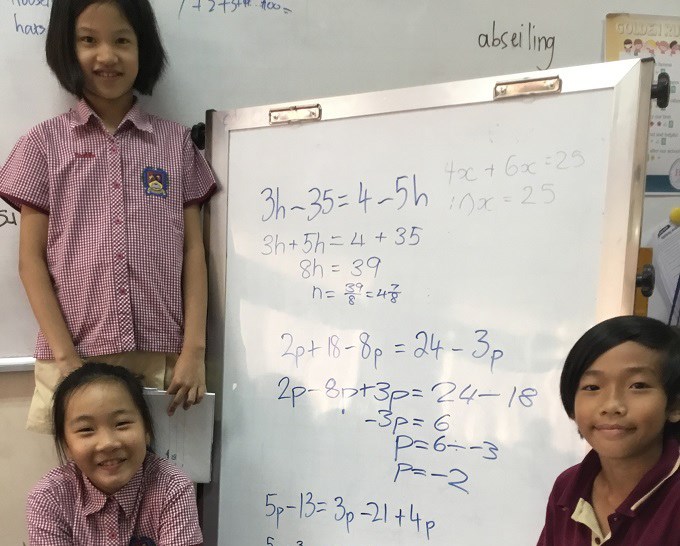 1+2+3+4...100=
abseiling
GOLDEN RU
4x + 6x = 25
10x = 25
3h - 35 = 4 - 5h
3h + 5h = 4 + 35
8h = 39
h = 39/8 = 4 7/8
2p + 18 - 8p = 24 - 3p
2p - 8p + 3p = 24 - 18
-3p = 6
p = 6 ÷ -3
p = -2
5p - 13 = 3p - 21 + 4p